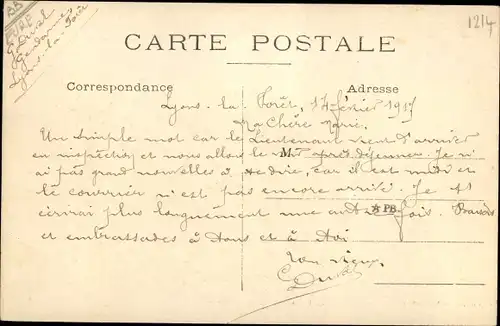 BB
EURE
E. Duval
Gendarme
Lyons-la-Forêt
1214
CARTE POSTALE
Correspondance
Adresse
Lyons-la-Forêt, 17 février 1917
Ma Chère Marie,
Un simple mot car le Lieutenant vient d'arriver
en inspection et nous allons le voir après déjeuner. Je n'
ai pas grand nouvelles à te dire, car il est midi et
le courrier n'est pas encore arrivé. Je t'
écrirai plus longuement une autre fois. Baisers
et embrassades à tous et à toi
Ton vieux
E. Duval
M
★ PB